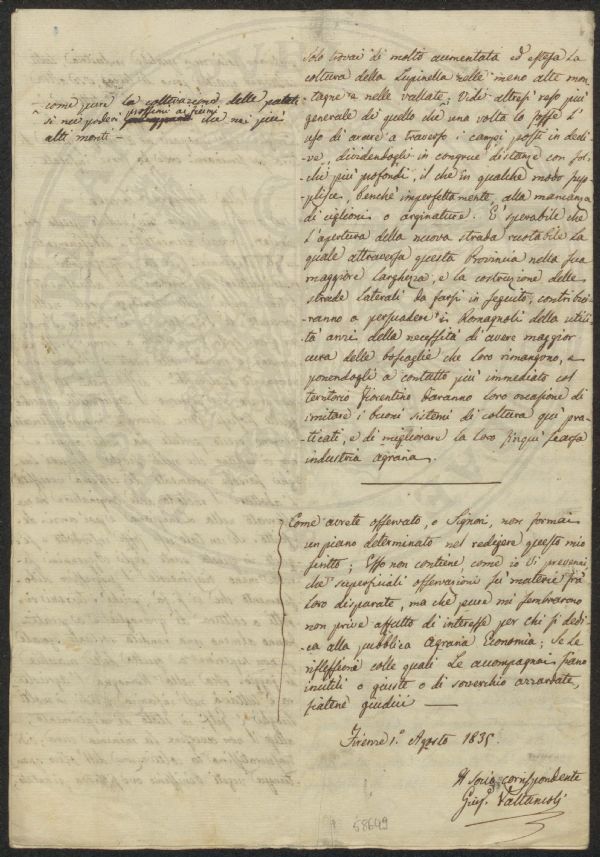 Solo trovai di molto aumentata ed estesa la
coltura della Lupinella nelle meno alte mon-
tagne e nelle vallate; Vidi altresì reso più
generale di quello che una volta lo fosse l'
uso di arare a traverso i campi posti in decli-
ve, dividendogli in congrue distanze con sol-
chi più profondi, il che in qualche modo sup-
plisce, benchè imperfettamente, alla mancanza
di ciglioni o arginature. È sperabile che
l'apertura della nuova strada ruotabile la
quale attraversa questa Provincia nella sua
maggiore larghezza, e la costruzione delle
strade laterali da farsi in seguito, contribui-
-ranno a persuadere i Romagnoli della utili-
tà anzi della necessità di avere maggior
cura delle boscaglie che loro rimangono, e
ponendogli a contatto più immediato col
territorio Fiorentino daranno loro occasione di
imitare i buoni sistemi di coltura quì pra-
ticati, e di migliorare la loro finquì scarsa
industria agraria.
come pure la coltivazione delle patate
sì nei poderi prossimi ai fiumi che nei più
alti monti
Come avrete osservato, o Signori, non formai
un piano determinato nel redigere questo mio
scritto; Esso non contiene, come io Vi prevenni,
che superficiali osservazioni su materie frà
loro disparate, ma che pure mi sembrarono
non prive affatto di interesse per chi si dedi-
-ca alla pubblica Agraria Economia; Se le
riflessioni colle quali le accompagnai siano
inutili o giuste o di soverchio azzardate,
siatene giudici —
Firenze 1.º Agosto 1835.
Il Socio corrispondente
Giusᵉ. Valtancoli
58649